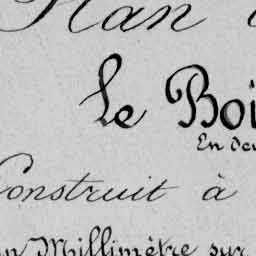 Plan
Le Boi
En deu
Construit à
un Millimètre sur